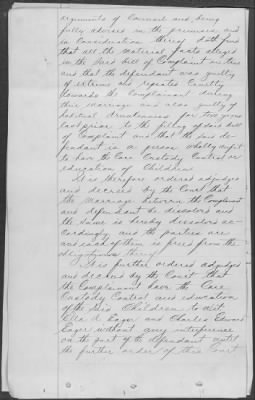 arguments of Counsel and, being
fully advised in the premises and
in Consideration thereof doth find
that all the material facts alleged
in the said bill of Complaint are true
and that the defendant was guilty
of extreme and repeated Cruelty
towards the Complainant during
their marriage and also guilty of
habitual drunkenness for two years
last prior to the filing of said bill
of Complaint and that the said de-
fendant is a person wholly unfit
to have the Care Custody Control or
education of Children
It is therefore ordered adjudged
and decreed by the Court that
the marriage between the Complainant
and defendant be dissolved and
the same is hereby dissolved ac-
cordingly and the parties are
and each of them is freed from the
obligations thereof
It is further ordered adjudged
and decreed by the Court that
the Complainant have the Care
Custody Control and education
of the said Children to wit
Ella A Eager and Charles Edward
Eager without any interference
on the part of the defendant until
the further order of this Court